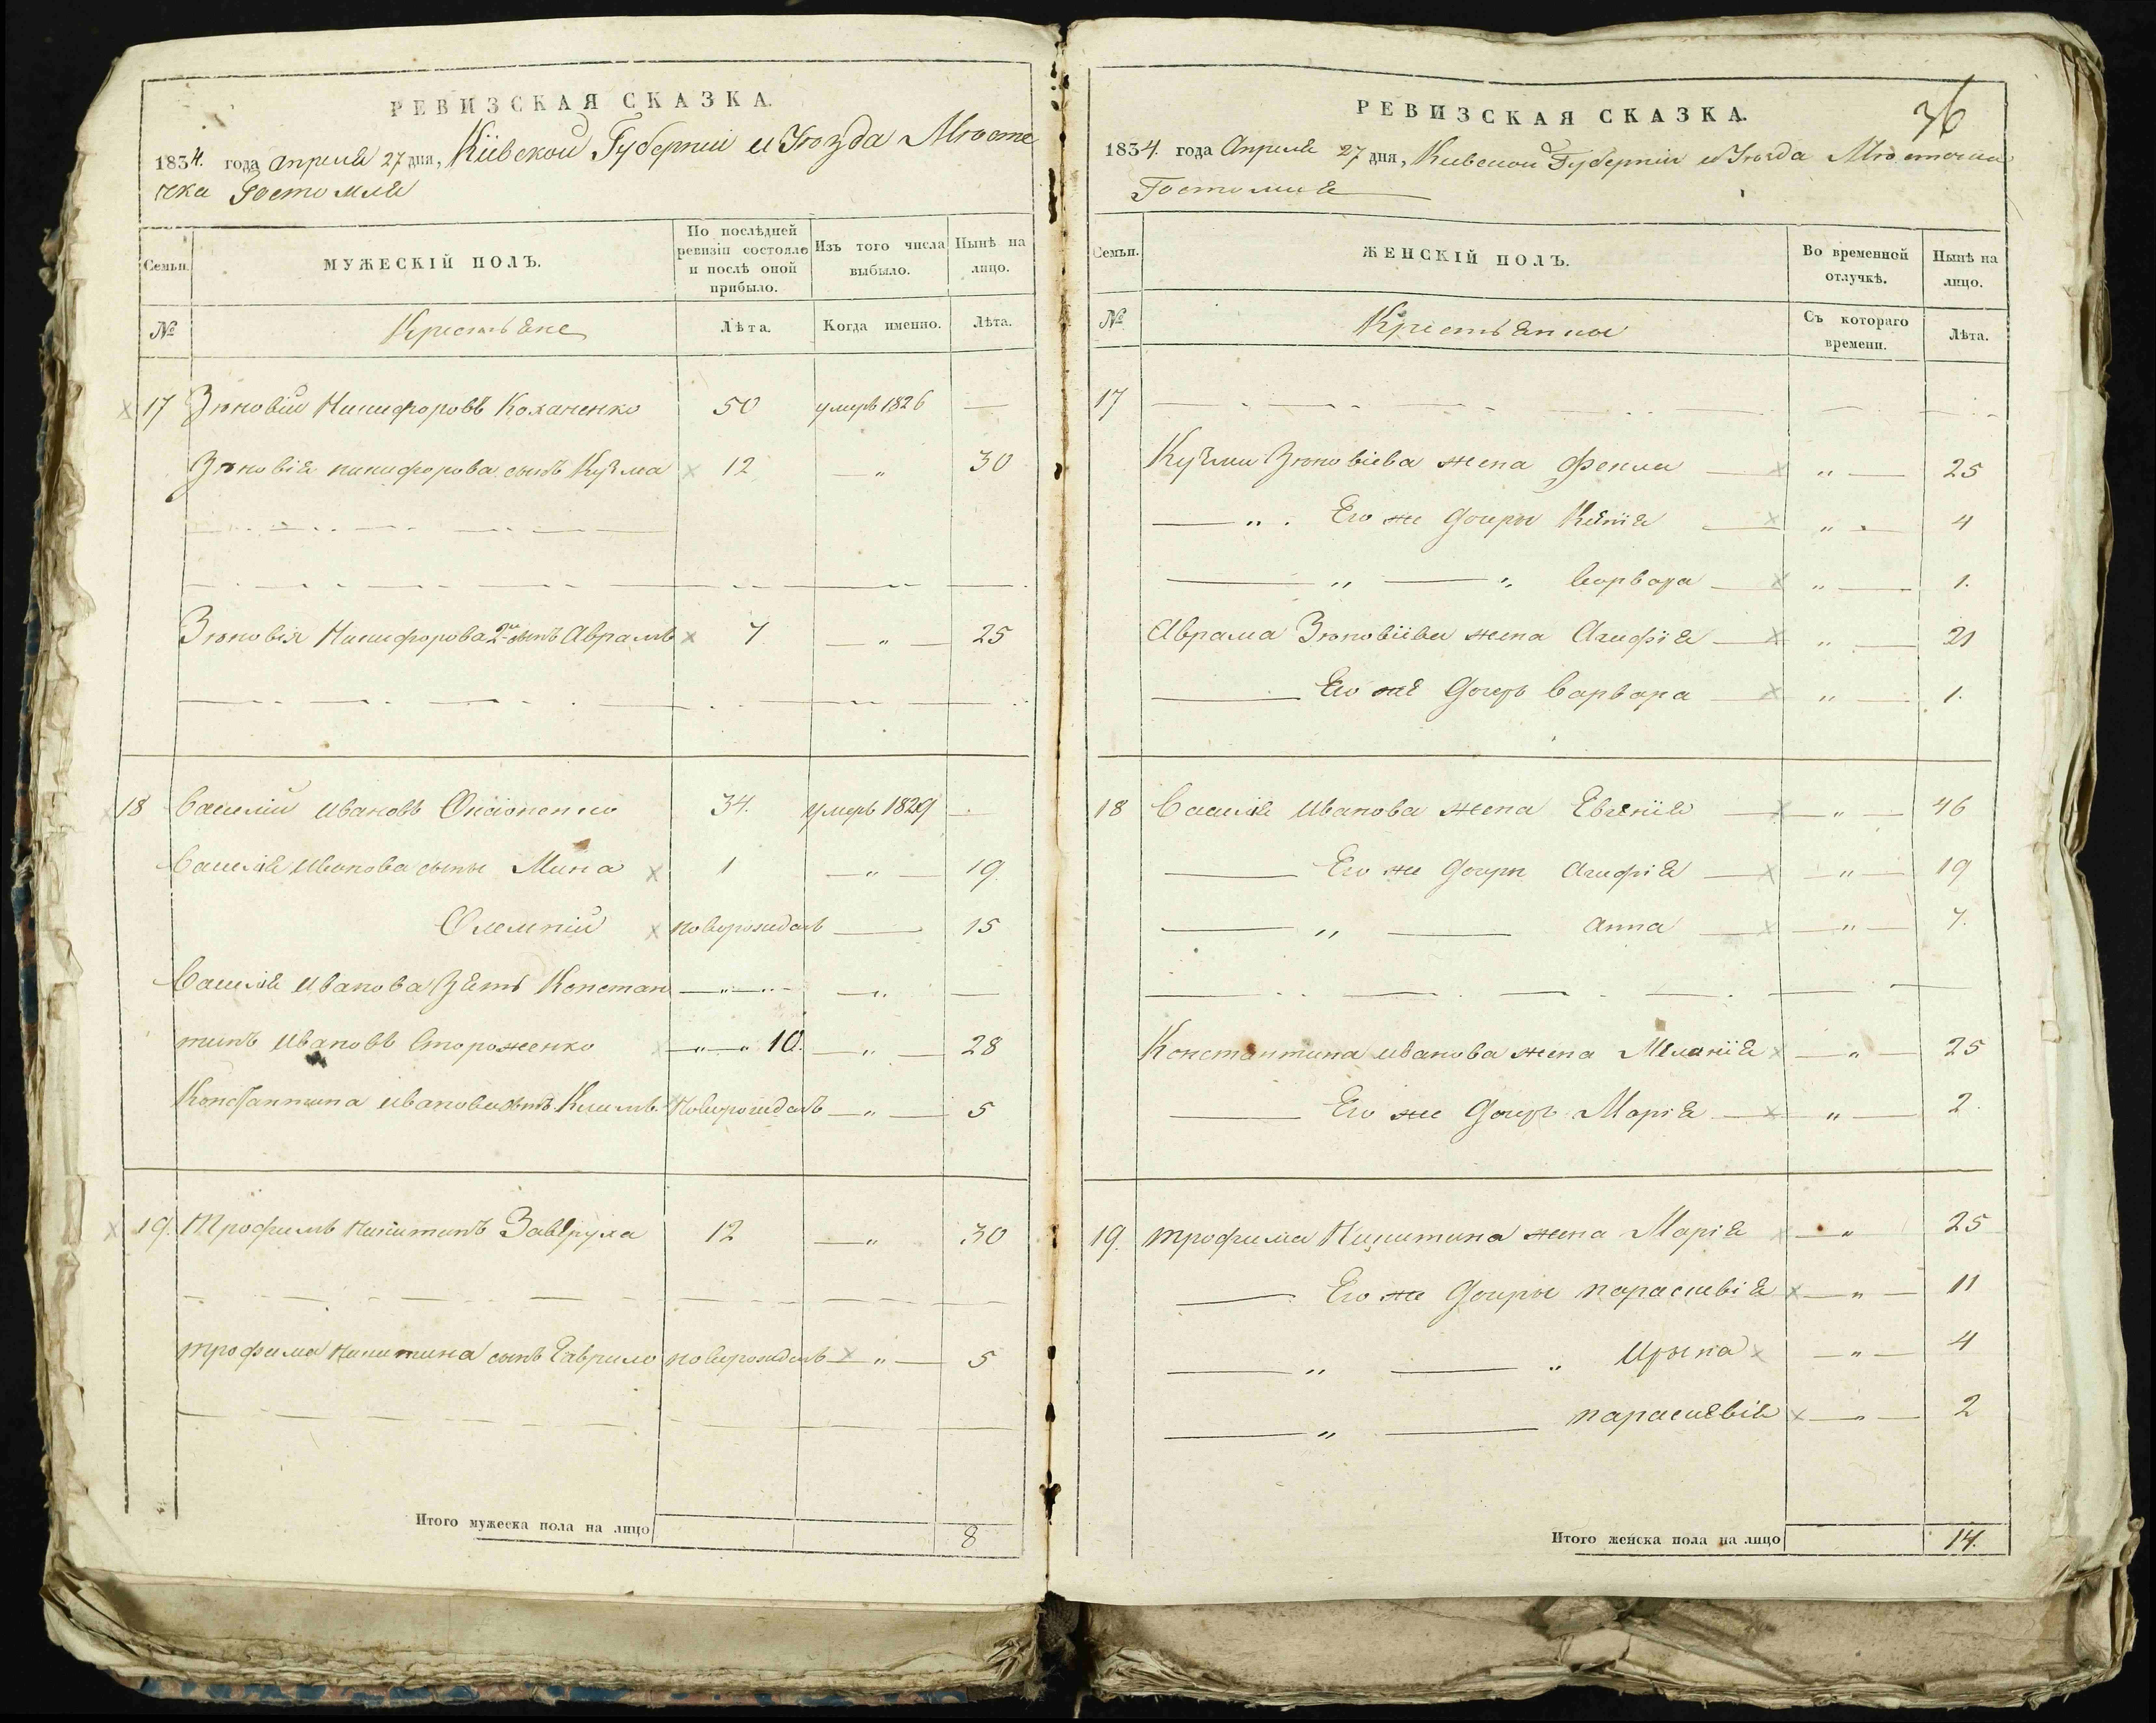 РЕВИЗСКАЯ СКАЗКА.
1834. года Апреля 27 дня, Кіевской Губерніи и Уѣзда Мѣсте
чка Гостомля
Семьи.
МУЖЕСКІЙ ПОЛЪ.
По послѣдней ревизіи состояло и послѣ оной прибыло.
Изъ того числа выбыло.
Нынѣ на лицо.
№
Крестьяне
Лѣта.
Когда именно.
Лѣта.
17 Зѣновій Никифоровъ Коханенко 50 умеръ 1826 —
Зѣновія никифорова сынъ Кузма 12 — „ 30
Зѣновія Никифорова 2й сынъ Аврамъ 7 — „ — 25
18 Василій Ивановъ 34. умеръ 1829 —
Василія Иванова сыны Мина 1 — „ — 19
Олемпій новорожданъ — 15
Василія Иванова Зять Констан — „ — — „ —
тинъ Ивановъ Стороженко „ — „ 10. — „ — 28
Константина Иванова сынъ Климъ Новорожданъ — „ — 5
19. Трофимъ Никитинъ Завѣруха 12 — „ 30
Трофима Никитина сынъ Гаврило новорожданъ — „ — 5
Итого мужеска пола на лицо 8
36
РЕВИЗСКАЯ СКАЗКА.
1834. года Апреля 27 дня, Киевской Губерніи и Уѣзда Мѣстечка
Гостомля
Семьи.
ЖЕНСКІЙ ПОЛЪ.
Во временной отлучкѣ.
Нынѣ на лицо.
№
Крестьянки
Съ котораго времени.
Лѣта.
17
Кузми Зѣновіева жена Фекла — „ — 25
— „ . Его же дочери Ксенія — „ — 4
— „ — „ Варвара — „ — 1.
Аврама Зѣновіева жена Агафія — „ — 21
— Его же дочерь Варвара — „ — 1.
18 Василія Иванова жена Евгенія — „ — 46
— Его же дочери Агафія — „ — 19
— „ — Анна — „ — 7.
Константина Иванова жена Меланія — „ — 25
— Его же дочерь Марія — „ — 2.
19. Трофима Никитина жена Марія — „ 25
— Его же дочеры параскевія — „ — 11
— „ — „ Ирына — „ — 4
— „ — параскевія — „ — 2
Итого женска пола на лицо 14.